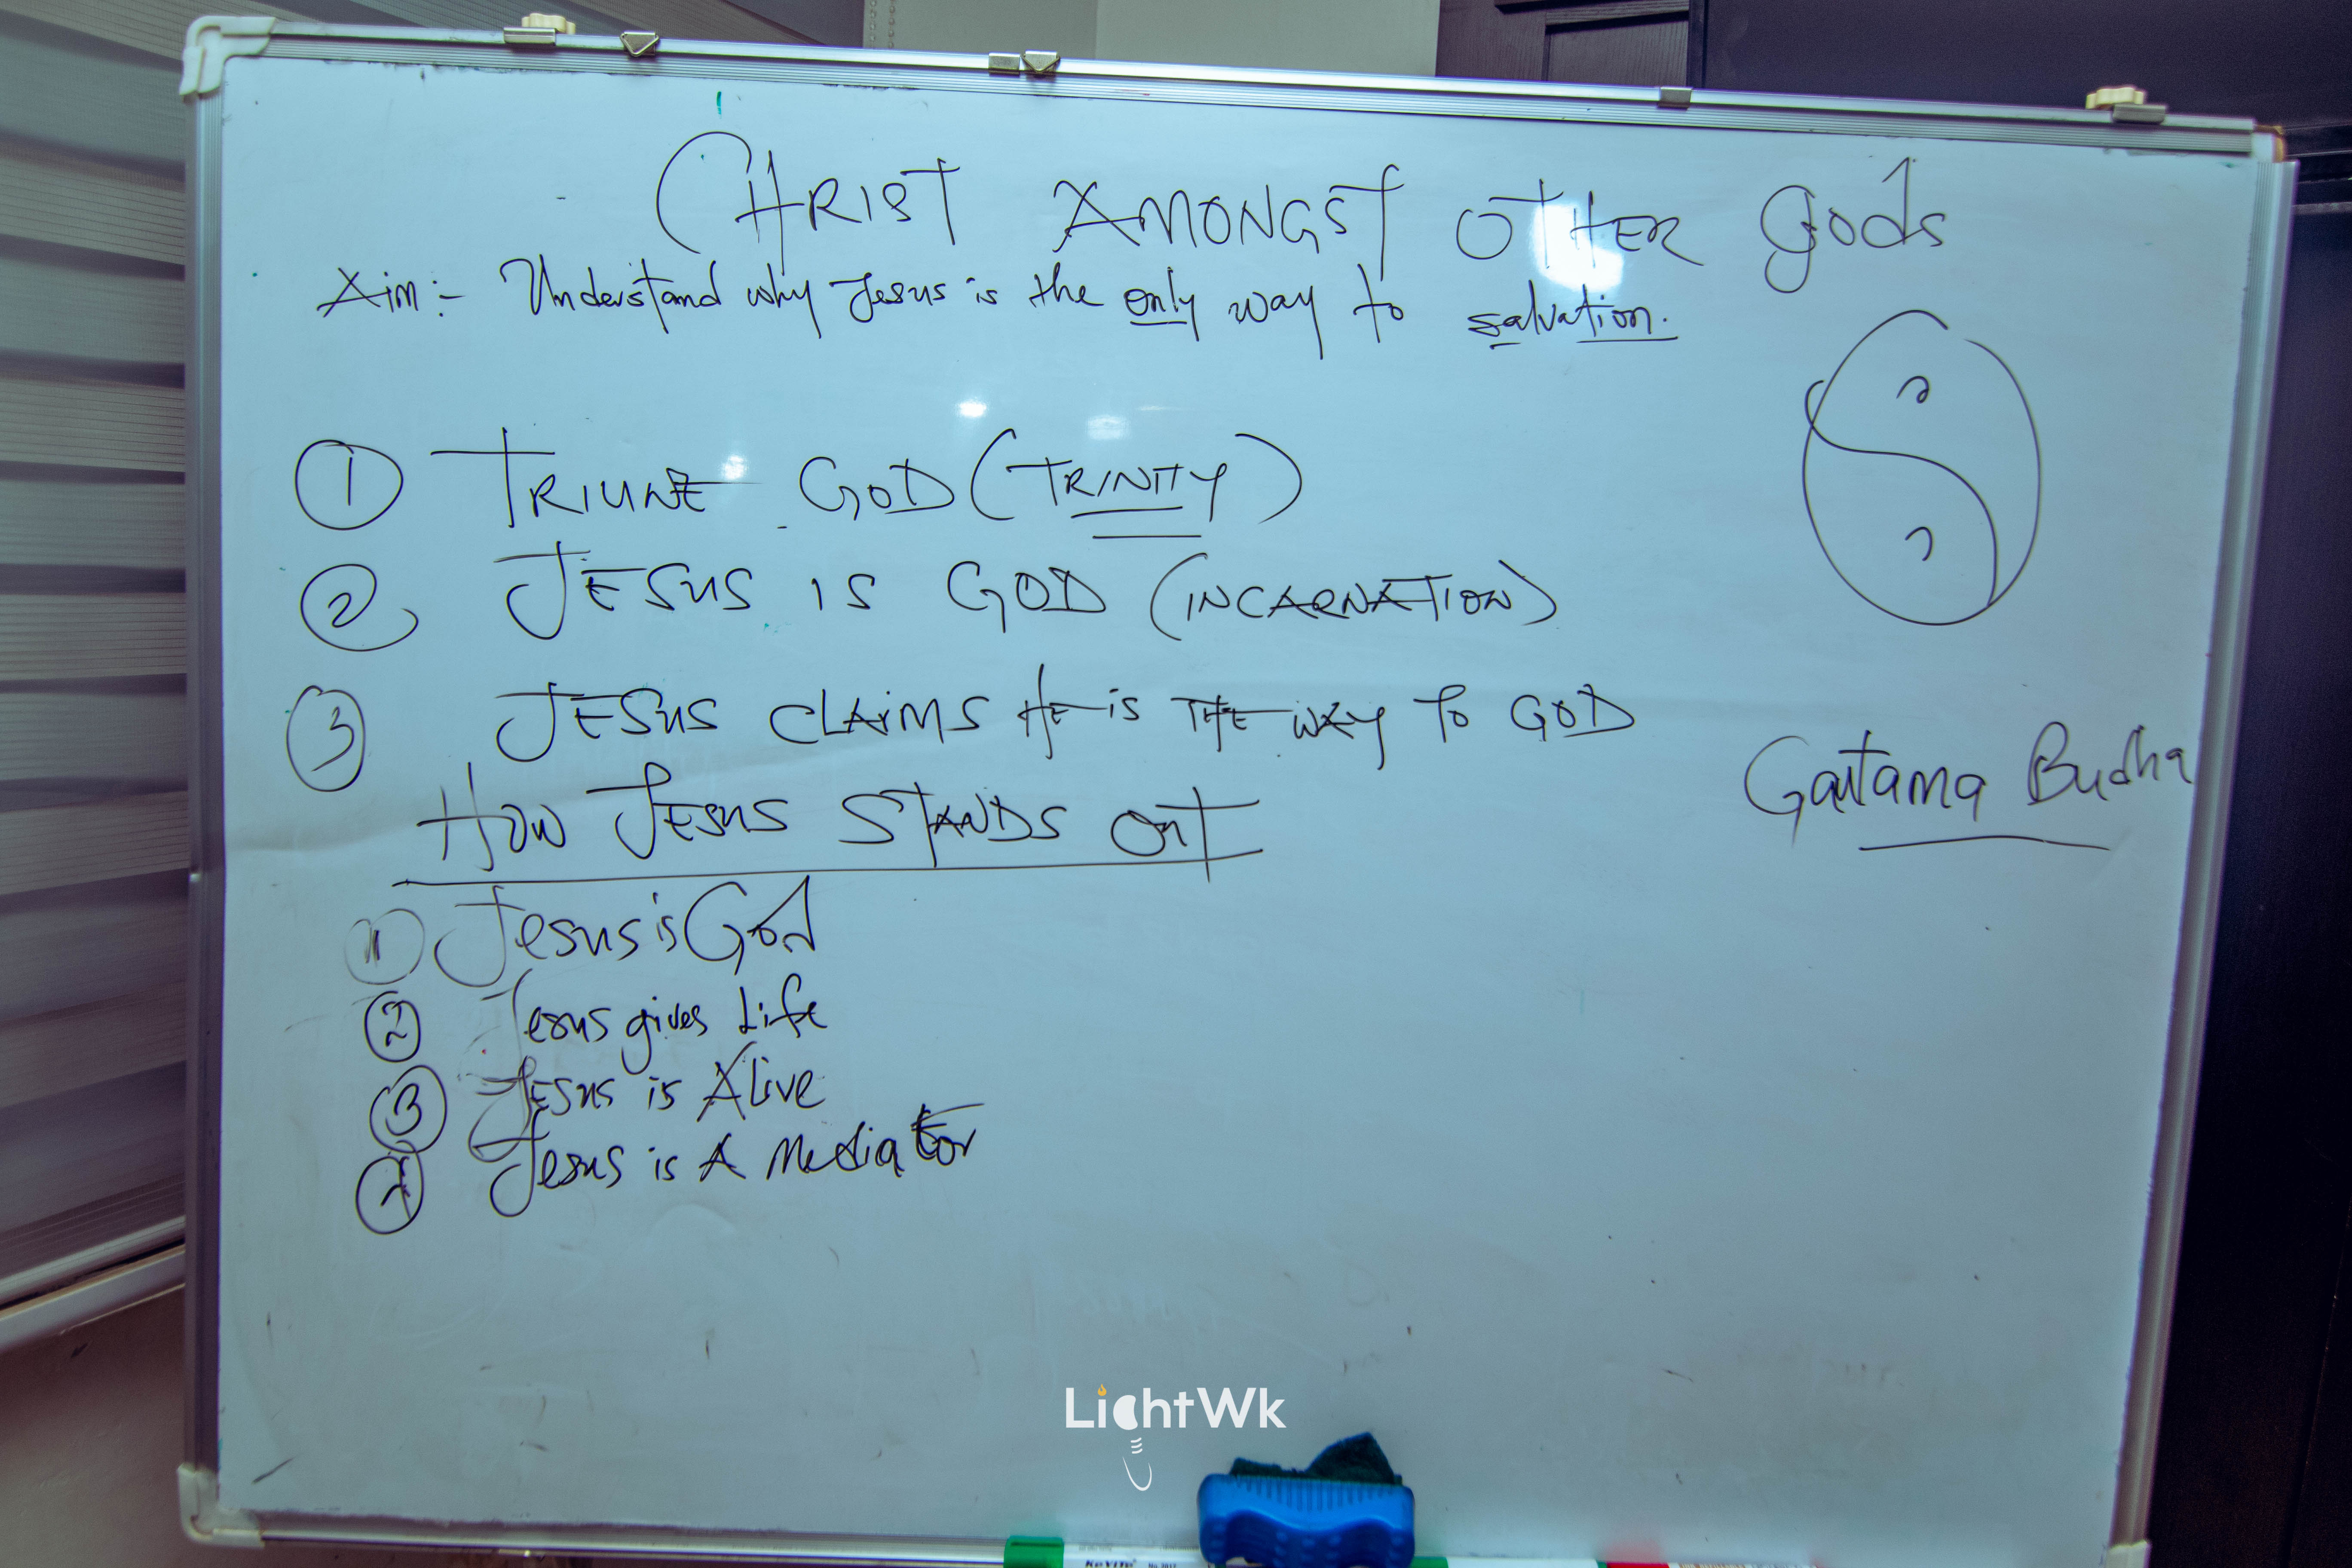 CHRIST AMONGST OTHER gods
Aim:- Understand why Jesus is the only way to salvation.
1 TRIUNE GOD (TRINITY)
2 JESUS IS GOD (INCARNATION)
3 JESUS CLAIMS HE is THE WAY To GOD
Gautama Budha
How JESUS STANDS OUT
1 Jesus is God
2 Jesus gives Life
3 JESUS is Alive
4 Jesus is A Mediator
LightWk
KeVite